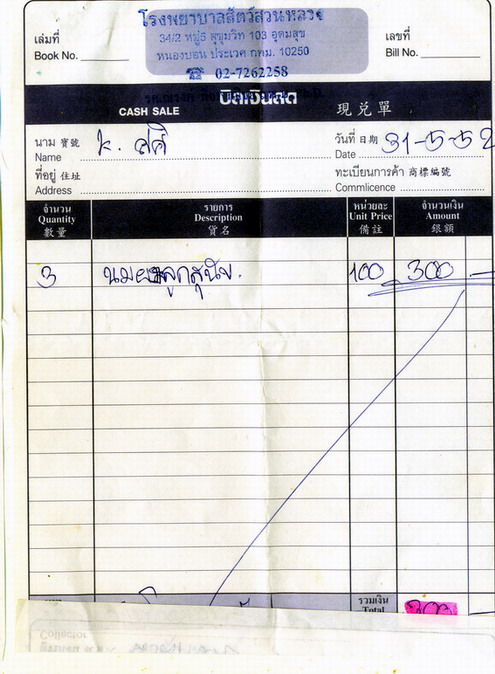 โรงพยาบาลสัตว์สวนหลวง
34/2 หมู่5 สุขุมวิท 103 อุดมสุข
หนองบอน ประเวศ กทม. 10250
☎ 02-7262258
เล่มที่
Book No.
เลขที่
Bill No.
CASH SALE บิลเงินสด 現兌單
นาม 寶號 K. ศศิ
Name
วันที่ 日期 31-5-52
Date
ที่อยู่ 住址
Address
ทะเบียนการค้า 商標編號
Commlicence
จำนวน รายการ หน่วยละ จำนวนเงิน
Quantity Description Unit Price Amount
數量 貨名 備註 銀額
3 นมผงลูกสุนัข. 100 300 —
รวมเงิน
Total 300
Collector